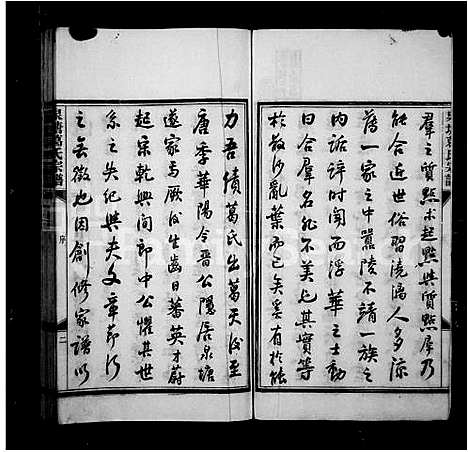 羣之質點求起點與質點犀乃
能合近世俗習澆漓人多涼
舊一家之中囂凌不靖一族之
内詬誶時聞而浮華之士動
曰合羣名非不美也其實等
於散沙亂葉而已矣奚有於能
力吾績葛氏出葛天後至
唐季華陽令晋公隱居泉塘
遂家焉厥後生齒日蕃英才蔚
起宋乾興間郎中公懼其世
系之失紀與夫文章节行
之無徵也因創修家譜以
泉塘葛氏宗譜
序
二